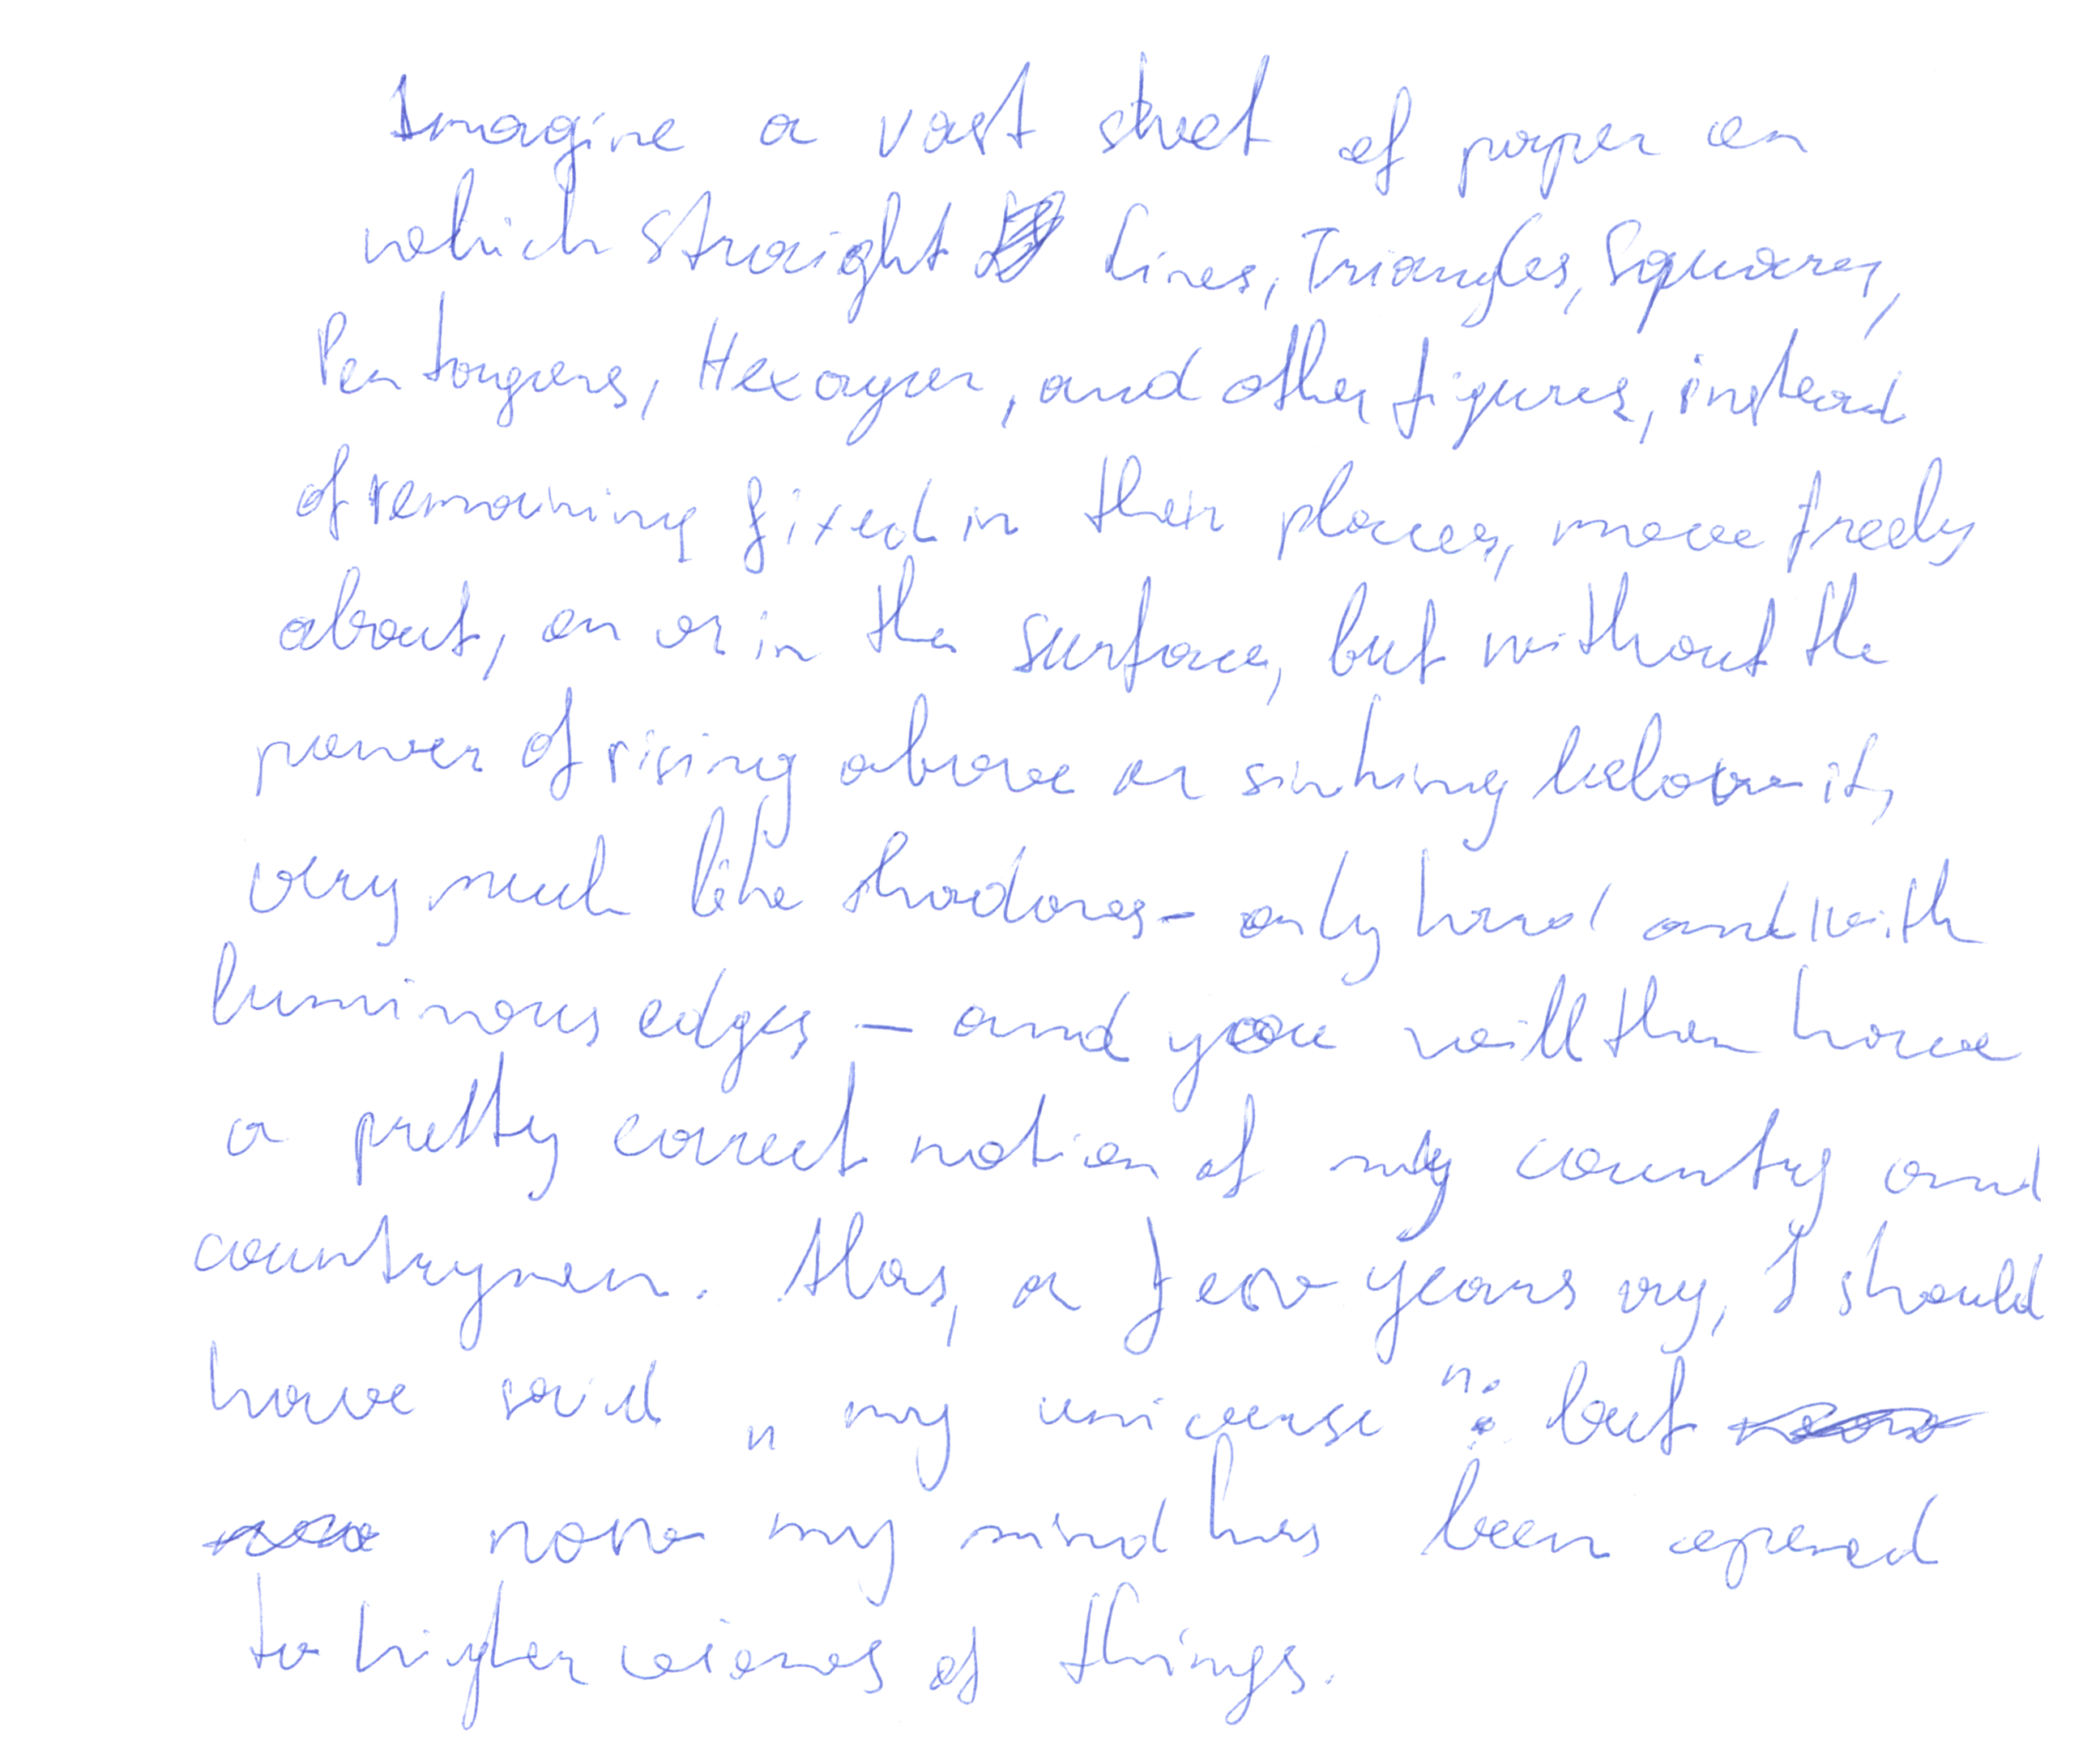 Imagine a vast sheet of paper on
which straight Lines, Triangles, Squares,
Pentagons, Hexagon, and other figures, instead
of remaining fixed in their places, move freely
about, on or in the surface, but without the
power of rising above or sinking below it,
very much like shadows - only hard and with
luminous edges - and you will then have
a pretty correct notion of my country and
countrymen. Alas, a few years ago, I should
have said „my universe": but
now my mind has been opened
to higher views of things.